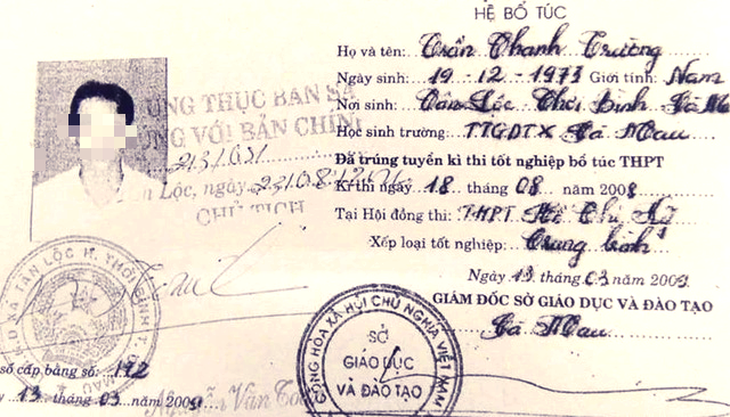 HỆ BỔ TÚC
Họ và tên: Trần Thanh Trường
Ngày sinh: 19 - 12 - 1973 Giới tính: Nam
Nơi sinh: Tân Lộc Thới Bình Cà M
Học sinh trường: TTGDTX Cà Mau
Đã trúng tuyển kì thi tốt nghiệp bổ túc THPT
Kì thi ngày 18 tháng 08 năm 2008
Tại Hội đồng thi: THPT Hồ Thị Kỷ
Xếp loại tốt nghiệp: Trung bình
Ngày 13 tháng 03 năm 2009
GIÁM ĐỐC SỞ GIÁO DỤC VÀ ĐÀO TẠO
Cà Mau
ỨNG THỰC BẢN SA
NG VỚI BẢN CHÍN
Lộc, ngày
CHỦ TỊCH
XÃ TÂN LỘC H. THỚI BÌNH T.
MAU
CỘNG HÒA XÃ HỘI CHỦ NGHĨA VIỆT NAM
SỞ
GIÁO DỤC
VÀ ĐÀO TẠO
số cấp bằng số: 192
y 13 tháng 03 năm 2009
Nguyễn Văn